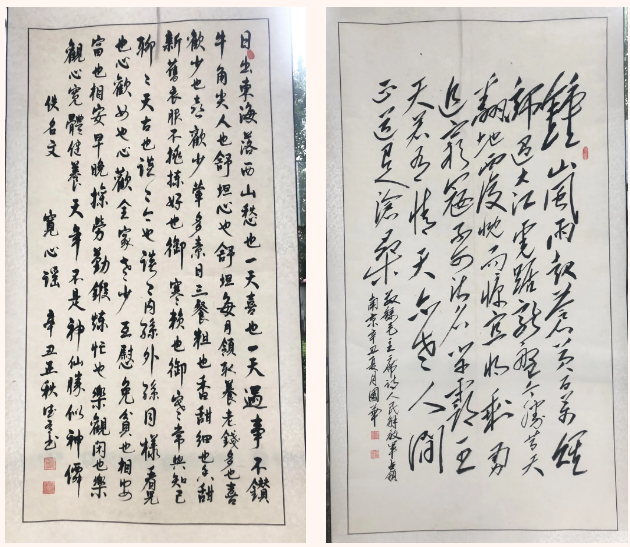 日出東海落西山愁也一天喜也一天遇事不鑽
牛角尖人也舒坦心也舒坦每月領取養老錢多也喜
歡少也喜歡少葷多素日三餐粗也香甜細也香甜
新舊衣服不挑揀好也御寒賴也御寒常與知己
聊〻天古也談〻今也談〻內孫外孫同樣看兒
也心歡女也心歡全家老少互慰勉貧也相安
富也相安早晚操勞勤鍛煉忙也樂觀閑也樂
觀心寬體健養天年不是神仙勝似神仙
佚名文 寬心謠 辛丑正秋書
鍾山風雨起蒼黃百萬雄
師過大江虎踞龍盤今勝昔天
翻地覆慨而慷宜將剩勇
追窮寇不可沽名學霸王
天若有情天亦老人間
正道是滄桑
敬錄毛主席詩人民解放軍占領
南京辛丑夏月國華